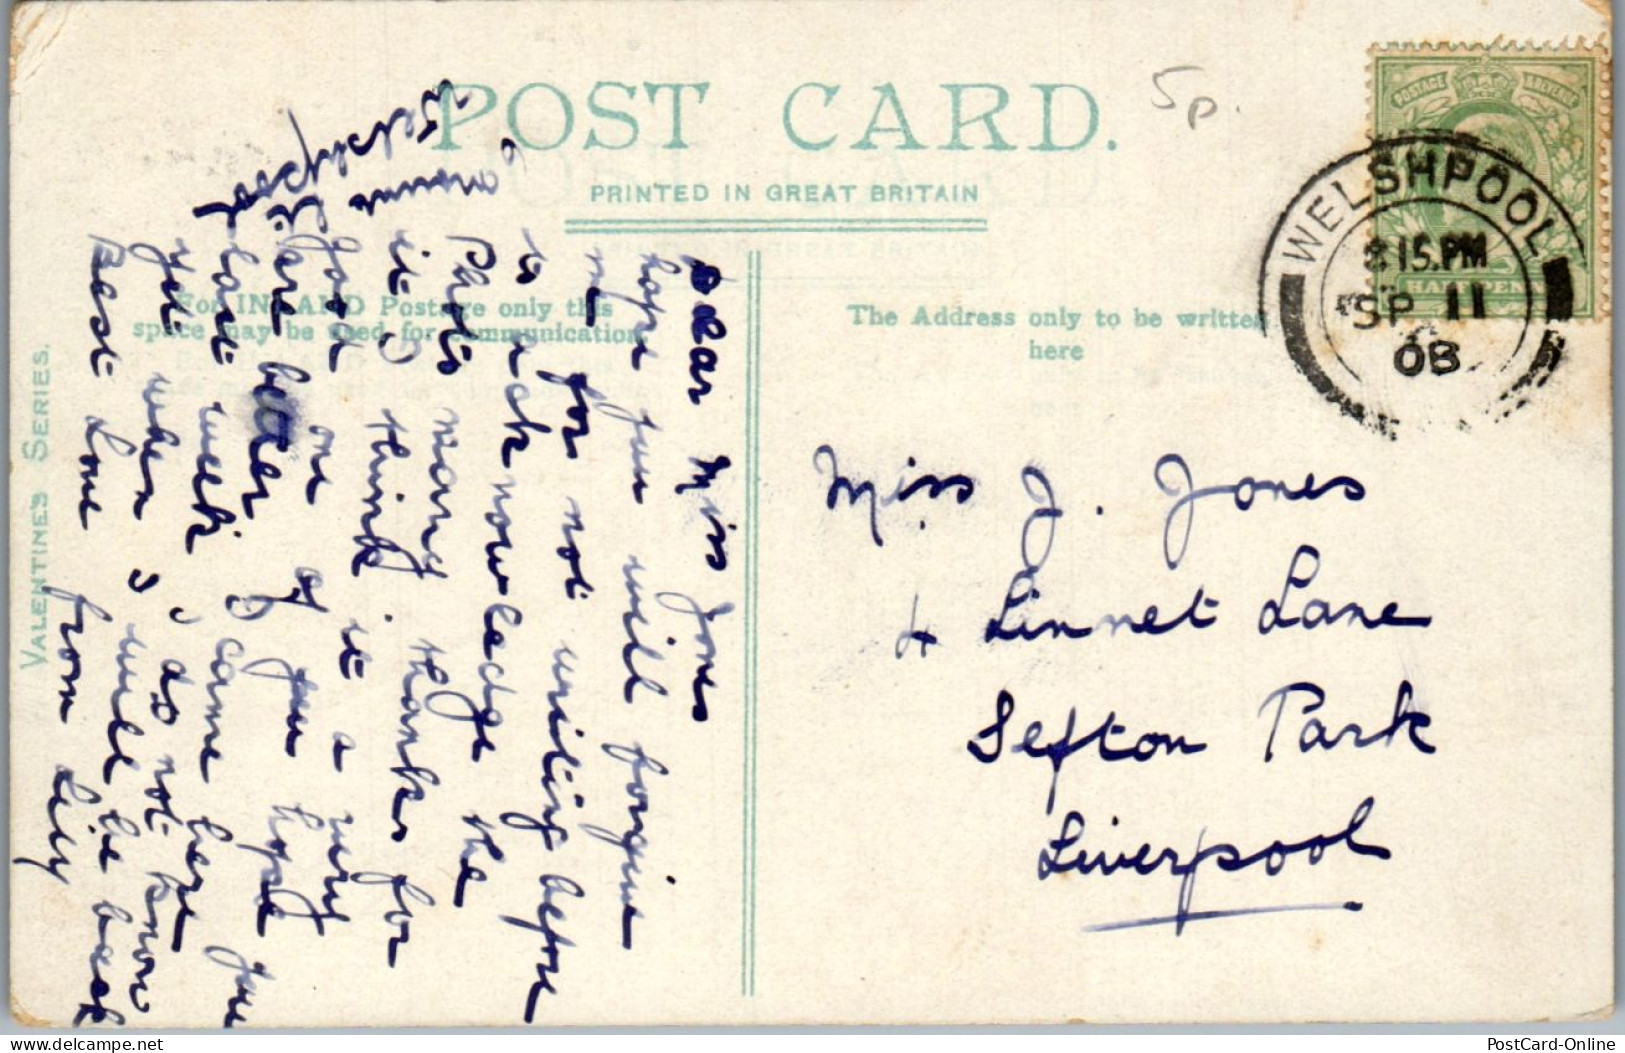 POST CARD.
PRINTED IN GREAT BRITAIN
For INLAND Postage only this
space may be used for communication
The Address only to be written
here
VALENTINE'S SERIES.
5p.
POSTAGE REVENUE
HALFPENNY
WELSHPOOL
8 15.PM
SP 11
08
Miss J. Jones
4 Linnet Lane
Sefton Park
Liverpool
Welshpool
Dear Miss Jones
I hope you will forgive
me for not writing before
to acknowledge the
Photo many thanks for
it I think it a very
good one of you hope
are better I came here
last week
yet when I do not know
I will be back
Best Love from Lily
PostCard-Online